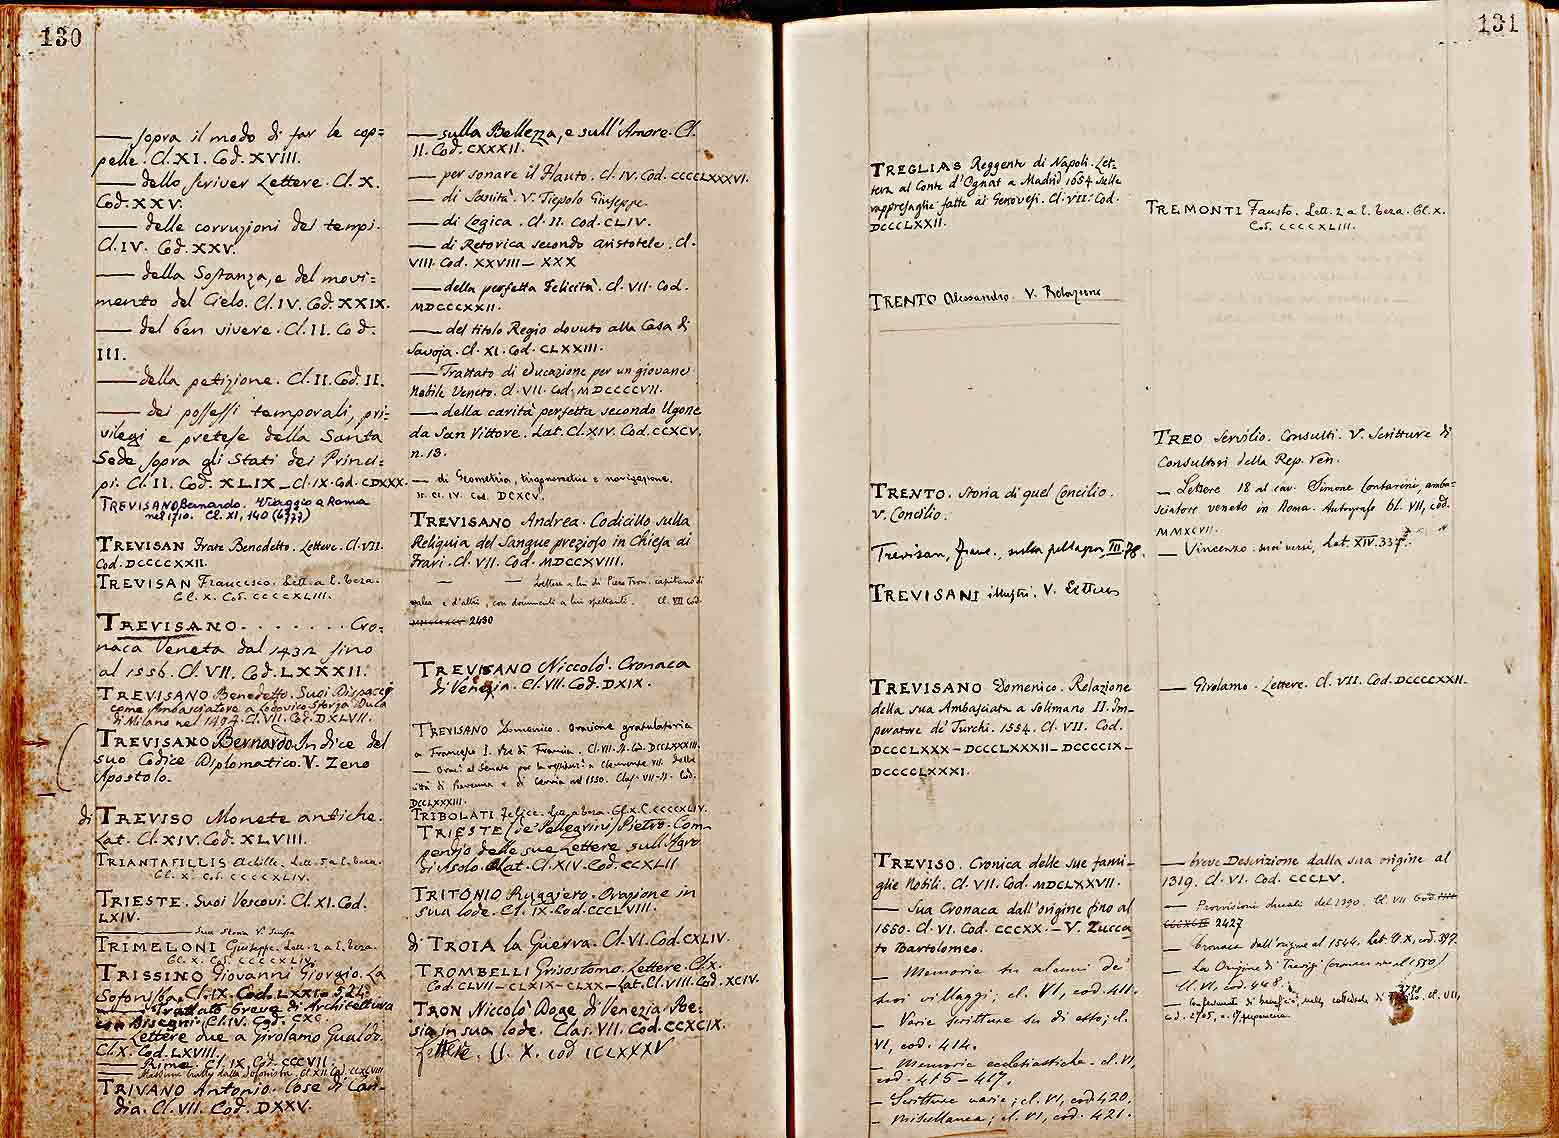 130
— sopra il modo di far le cop=
pelle. Cl. XI. Cod. XVIII.
— dello scriver Lettere. Cl. X.
Cod. XXV.
— delle corruzioni dei tempi.
Cl. IV. Cod. XXV.
— della Sostanza, e del movi=
mento del Cielo. Cl. IV. Cod. XXIX.
— del ben vivere. Cl. II. Cod.
III.
— della petizione. Cl. II. Cod. II.
— dei possessi temporali, pri=
vilegi e pretese della Santa
Sede sopra gli Stati dei Princi=
pi. Cl. II. Cod. XLIX – Cl. IX. Cod. CDXXX.
TREVISANO Bernardo. Viaggio a Roma
nel 1710. Cl. XI, 140 (6777)
TREVISAN Frate Benedetto. Lettere. Cl. VII.
Cod. DCCCCXXII.
TREVISAN Francesco. Lett. a l. Beza.
Cl. X. Cod. CCCCXLIII.
TREVISANO . . . . . . . Cro=
naca Veneta dal 1432 sino
al 1556. Cl. VII. Cod. LXXXII.
TREVISANO Benedetto. Suoi Dispacci
come Ambasciatore a Lodovico Sforza Duca
di Milano nel 1497. Cl. VII. Cod. DXLVII.
TREVISANO Bernardo Indice del
suo Codice Diplomatico. V. Zeno
Apostolo.
di TREVISO Monete antiche.
Lat. Cl. XIV. Cod. XLVIII.
TRIANTAFILLIS Achille. Lett. 5 a l. Beza.
Cl. X. Cod. CCCCXLIV.
TRIESTE. Suoi Vescovi. Cl. XI. Cod.
LXIV.
— Sua storia V.
TRIMELONI Giuseppe. Lett. 2 a l. Beza.
Cl. X. Cod. CCCCXLIV.
TRISSINO Giovanni Giorgio. La
Sofonisba. Cl. IX. Cod. LXXI e 524.
— Trattato breve di Architettura
con Disegni. Cl. IV. Cod. CXC
— Lettere due a Girolamo Gualdo.
Cl. X. Cod. LXVIII.
— Rime. Cl. IX. Cod. CCCVII.
TRIVANO Antonio. Cose di Can=
dia. Cl. VII. Cod. DXXV.
— sulla Bellezza, e sull' Amore. Cl.
II. Cod. CXXXII.
— per sonare il Flauto. Cl. IV. Cod. CCCCLXXXVI.
— di Sanità. V. Tiepolo Giuseppe.
— di Logica. Cl. II. Cod. CLIV.
— di Retorica secondo Aristotele. Cl.
VIII. Cod. XXVIII – XXX
— della perfetta Felicità. Cl. VII. Cod.
MDCCCXXII.
— del titolo Regio dovuto alla Casa di
Savoja. Cl. XI. Cod. CLXXIII.
— Trattato di educazione per un giovane
Nobile Veneto. Cl. VII. Cod. MDCCCCVII.
— della carità perfetta secondo Ugone
da San Vittore. Lat. Cl. XIV. Cod. CCXCV.
n. 13.
— di Geometria, trigonometria e navigazione.
It. Cl. IV. Cod. DCXCV.
TREVISANO Andrea. Codicillo sulla
Reliquia del Sangue prezioso in Chiesa ai
Frari. Cl. VII. Cod. MDCCXVIII.
— — Lettere a lui di Piero Tron. capitano di
galea e d'altri, con documenti a lui spettanti. Cl. VII Cod.
2430
TREVISANO Niccolò. Cronaca
di Venezia. Cl. VII. Cod. DXIX.
TREVISANO Domenico. Orazione gratulatoria
a Francesco I. Re di Francia. Cl. VII. It. Cod. DCCLXXXIII.
— Oraz. al Senato per la restituz. a Clemente VII. delle
città di Ravenna e di Cervia nel 1530. Clas. VII. It. Cod.
DCCLXXXIII.
TRIBOLATI Felice. Lett. a Beza. Cl. X. C. CCCCXLIV.
TRIESTE (de' Pellegrini) Pietro. Com=
pendio delle sue Lettere sull' Agro
di Asolo. Lat. Cl. XIV. Cod. CCXLII
TRITONIO Ruggiero. Orazione in
sua lode. Cl. IX. Cod. CCCLVIII.
di TROIA la Guerra. Cl. VI. Cod. CXLIV.
TROMBELLI Grisostomo. Lettere. Cl. X.
Cod. CLVII – CLXIX – CLXX – Lat. Cl. VIII. Cod. XCIV.
TRON Niccolò Doge di Venezia. Poe=
sia in sua lode. Clas. VII. Cod. CCXCIX.
Lettere. Cl. X. cod ICLXXXV
131
TREGLIAS Reggente di Napoli. Let=
tera al Conte d'Ognat a Madrid 1654 sulle
rappresaglie fatte ai Genovesi. Cl. VII. Cod.
DCCCLXXII.
TRENTO Alessandro. V. Relazione
TRENTO. Storia di quel Concilio.
V. Concilio.
Trevisan, Franc., sulla pellagra, III. 78.
TREVISANI illustri. V. Lettere
TREVISANO Domenico. Relazione
della sua Ambasciata a Solimano II. Im=
peratore de' Turchi. 1554. Cl. VII. Cod.
DCCCLXXX – DCCCLXXXII – DCCCCIX –
DCCCCLXXXI.
TREVISO. Cronica delle sue fami=
glie Nobili. Cl. VII. Cod. MDCLXXVII.
— Sua Cronaca dall' origine sino al
1550. Cl. VI. Cod. CCCXX. – V. Zucca
to Bartolomeo.
— Memorie su alcuni de'
suoi villaggi; cl. VI, cod. 411.
— Varie scritture su di esso; cl.
VI, cod. 414.
— Memorie ecclesiastiche. cl. VI,
cod. 415 – 417.
— Scritture varie; cl. VI, cod 420.
— Miscellanea; cl. VI, cod. 421.
TREMONTI Fausto. Lett. 2 a l. Beza. Cl. X.
Cod. CCCCXLIII.
TREO Servilio. Consulti. V. Scritture di
Consultori della Rep. Ven.
— Lettere 18 al cav. Simone Contarini, amba=
sciatore veneto in Roma. Autografo Cl. VII, cod.
MMXCVII.
— Vincenzo. suoi versi, Lat. XIV. 337
— Girolamo. Lettere. Cl. VII. Cod. DCCCCXXII.
— breve Descrizione dalla sua origine al
1319. Cl. VI. Cod. CCCLV.
— Provvisioni ducali del 1390. Cl. VII Cod.
2427
— Cronaca dall' origine al 1544. Lat. Cl. X, cod. 397.
— La Origine di Trevigi (cronaca sino al 1550)
Cl. VI, cod. 448.